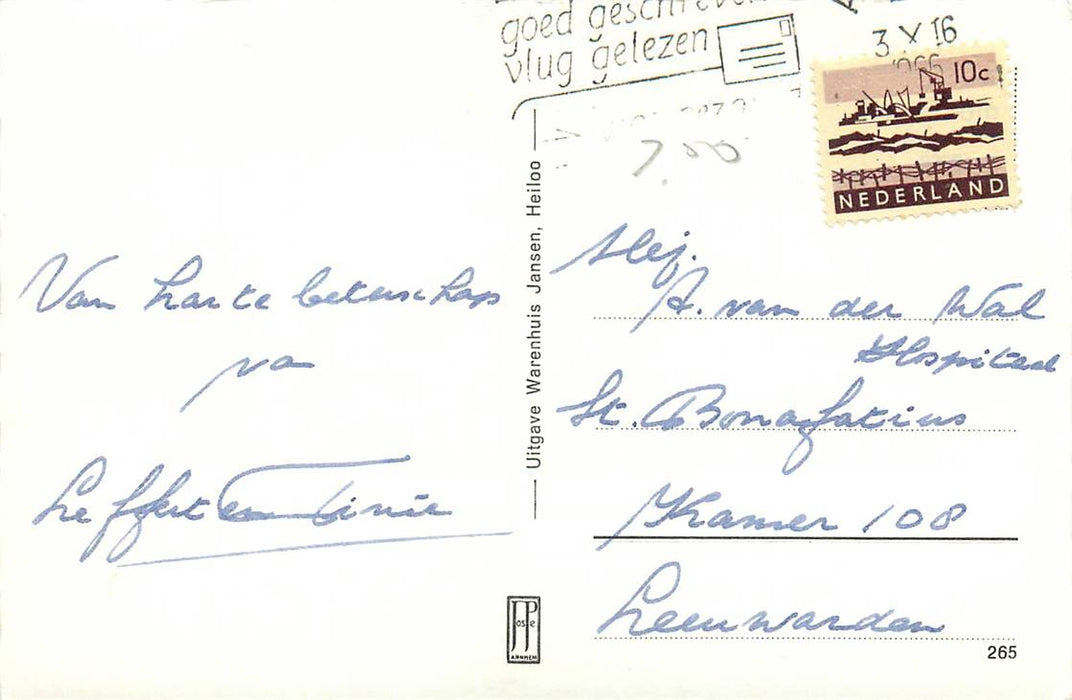 goed geschreven
vlug gelezen
3 X 16
10c
NEDERLAND
7.00
Van harte beterschap
van
Leffert en Tinie
Uitgave Warenhuis Jansen, Heiloo
Mej.
A. van der Wal
Hospitaal
St. Bonafatius
Kamer 108
Leeuwarden
JosPe
ARNHEM
265